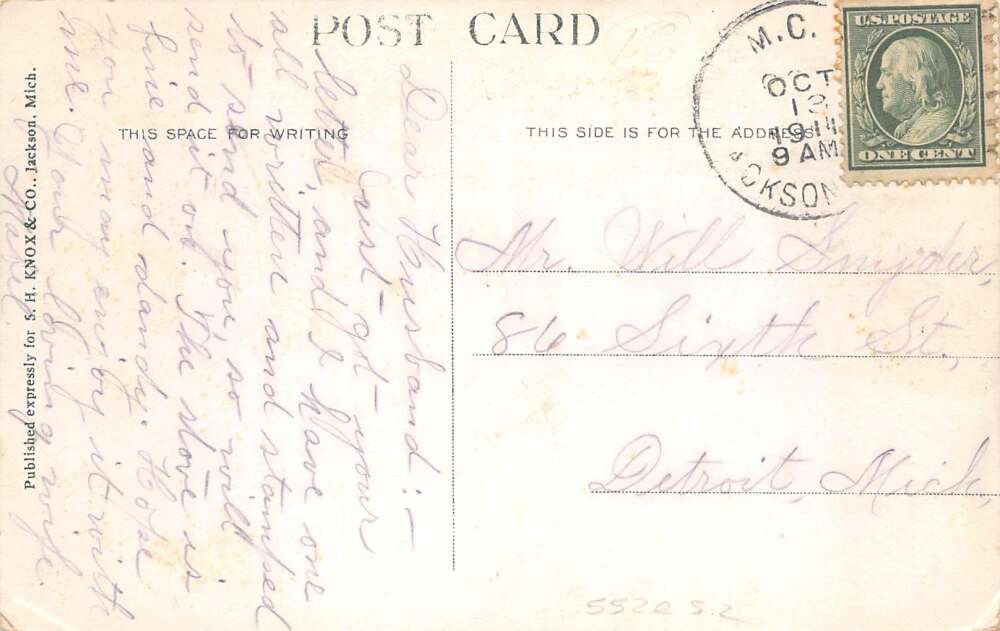 POST CARD
THIS SPACE FOR WRITING
THIS SIDE IS FOR THE ADDRESS
Published expressly for S. H. KNOX & CO., Jackson, Mich.
M.C.
OCT
1914
9 AM
CKSON
U.S. POSTAGE
ONE CENT
Dear Husband:-
Just got your
letter, and I have one
all written and stamped
to send you, so will
send it on. The stove is
fine and dandy. Hope
you may enjoy it with
me. Your loving wife.
Mabel
Mr. Will Snyder,
86 Sixth St.,
Detroit, Mich,
552e 5.2